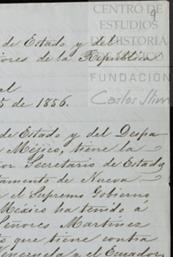 9
CENTRO DE
ESTUDIOS
DE HISTORIA
FUNDACIÓN
Carlos Slim
de Estado y del
ores de la República
al
5 de 1856.
de Estado y del Despa
Méjico, tiene la
or Secretario de Estado
tamento de Nueva
el Supremo Gobierno
México ha tenido á
Señores Martinez
que tiene contra
enezuela y el Ecuador